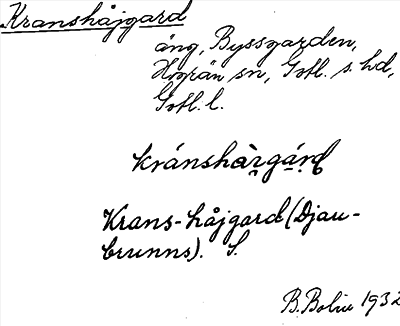 Kranshåjgard
äng, Byssgarden,
Hogrän sn, Gotl. s. hd,
Gotl. l.
Krans-håjgard (Djau-
brunns). S.
B. Bolin 1932